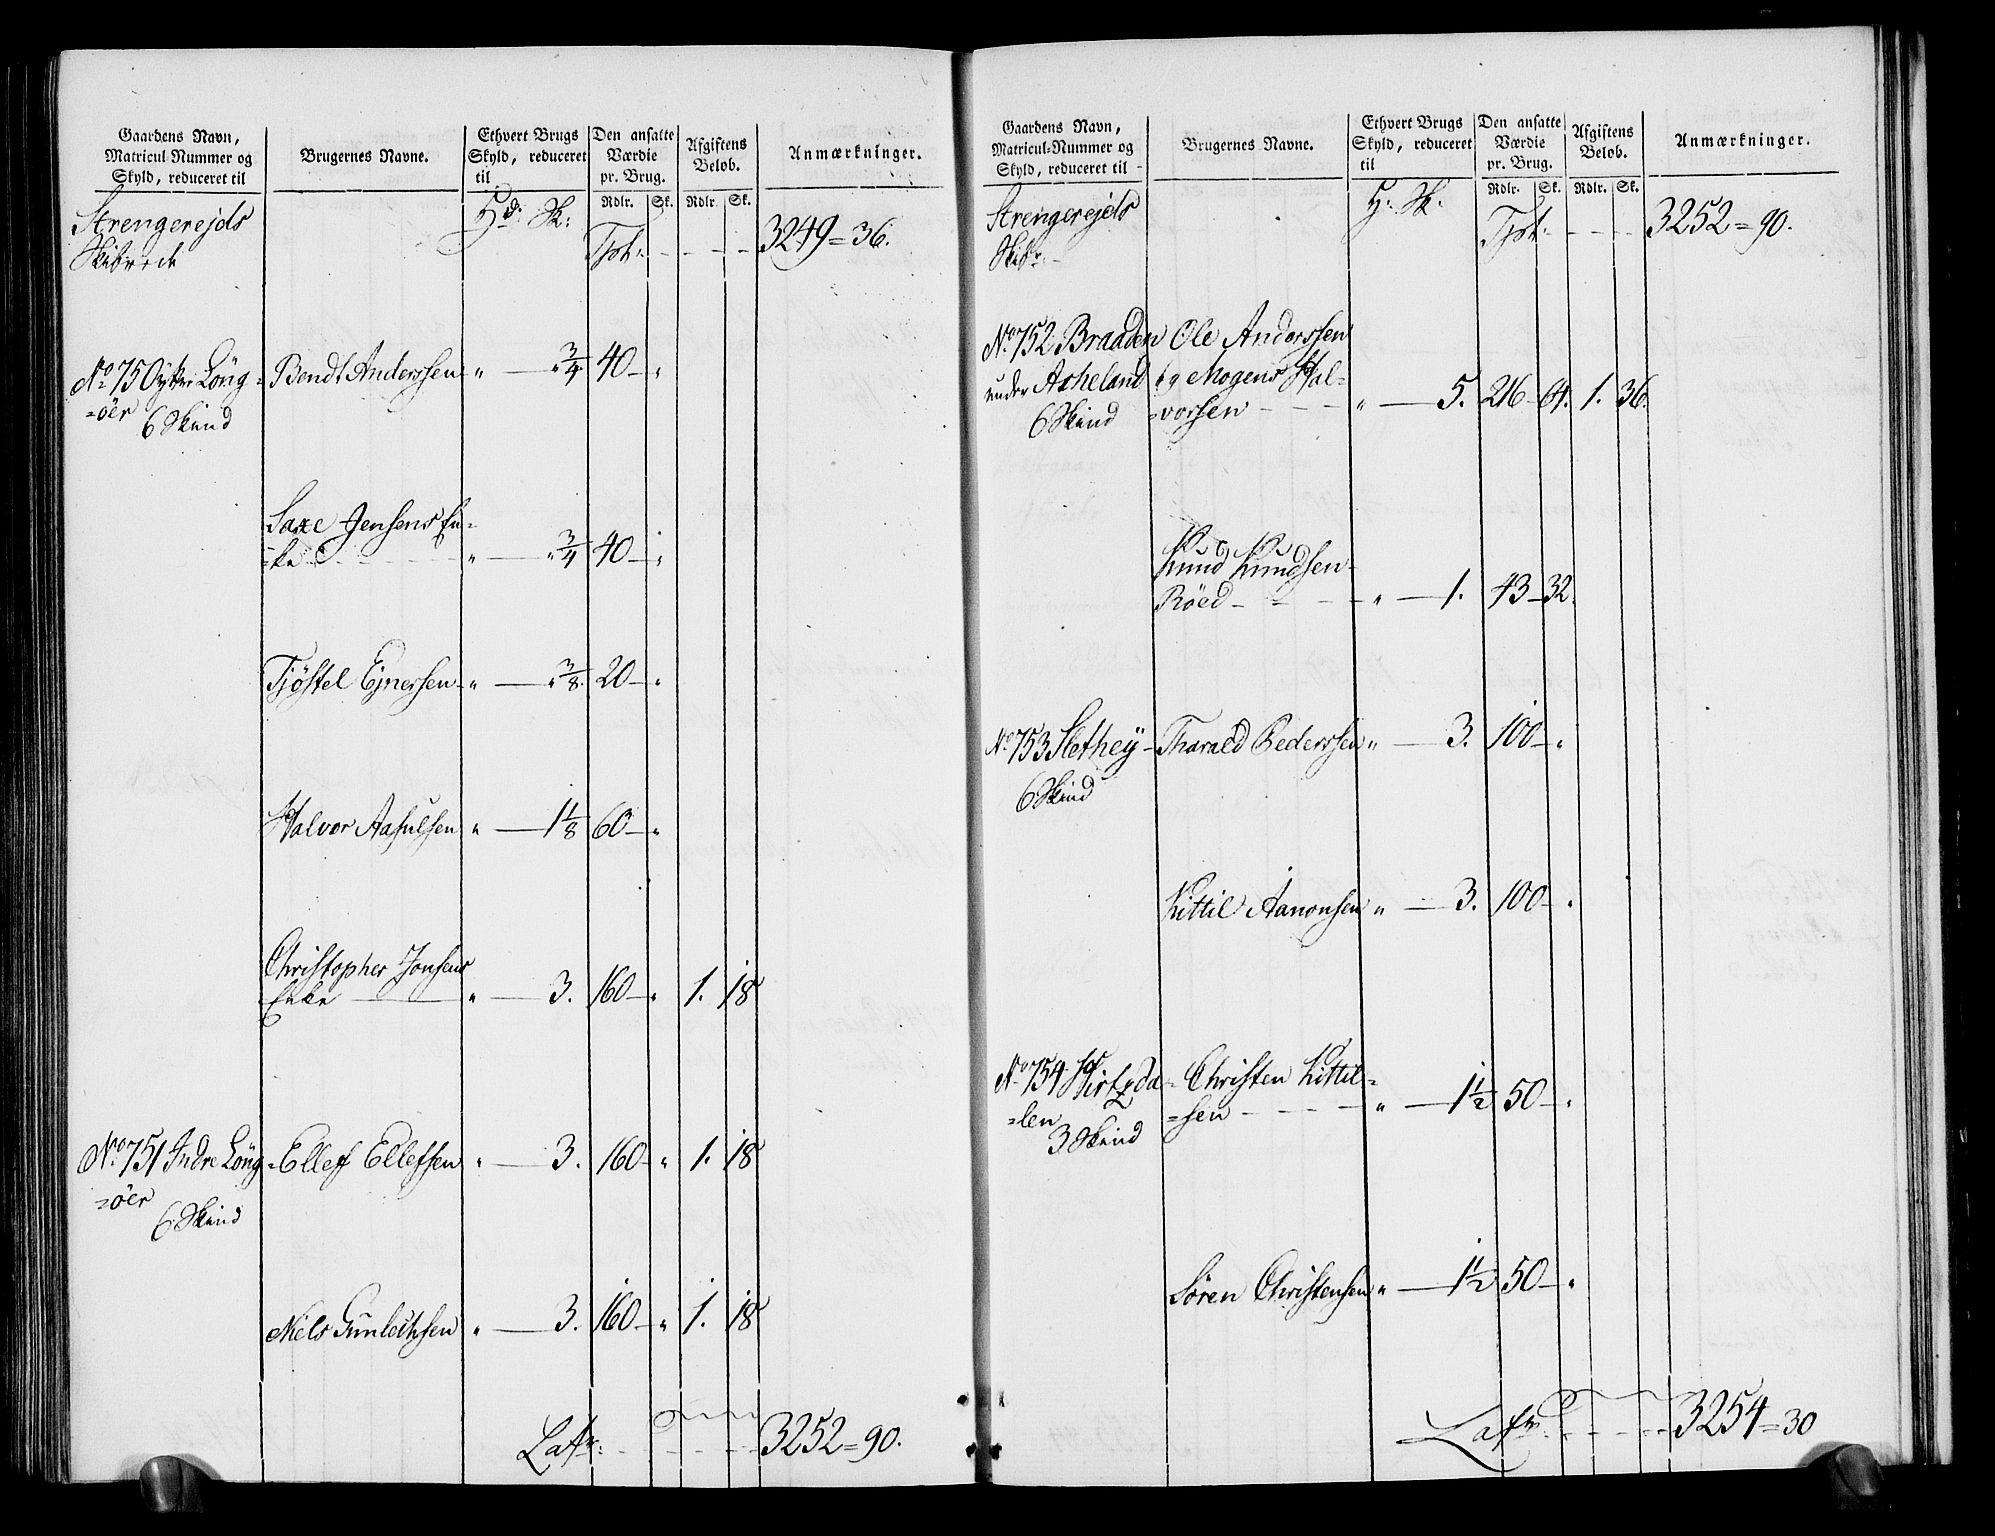 Gaardens Navn,
Matricul-Nummer og
Skyld, reduceret til
Brugernes Navne.
Ethvert Brugs
Skyld, reduceret
til
Den ansatte
Værdie
pr. Brug.
Rdlr. Sk.
Afgiftens
Beløb.
Rdlr. Sk.
Anmærkninger.
Strengerejds
Skibrede
Hd: Sk:
Tpt: - - - - 3249=36.
No 750 ytter Löng= Bendt Anderssen " — " 3/4 40 — "
=öer
6 Skind
Saxe Jensens En=
=ke - - - - " — " 3/4 40 — "
Tjöstel Ejnersen - " — " 3/8. 20 — "
Halvor Aasulsen " — 1 1/8 60 — "
Christopher Jonsens
Enke — " — 3. 160 — " 1. 18
No 751 Indre Löng= Ellef Ellefsen " — 3. 160 — " 1. 18
=öer
6 Skind
Niels Gunleichsen " — 3. 160 — " 1. 18
Latr: - - - - 3252=90.
Gaardens Navn,
Matricul-Nummer og
Skyld, reduceret til
Brugernes Navne.
Ethvert Brugs
Skyld, reduceret
til
Den ansatte
Værdie
pr. Brug.
Rdlr. Sk.
Afgiftens
Beløb.
Rdlr. Sk.
Anmærkninger.
Strengerejds
Skibr: -
H: Sk:
Tpt: - - - - 3252=90.
No 752 Braaden Ole Anderssen
under Askeland og Mogens Hal=
6 Skind =vorsen - - - " — 5. 216 64. 1. 36.
Knud Knudsen
Röed - - - - " — 1. 43 — 32.
No 753 Slethey - Tharald Pederssen " — 3. 100 — "
6 Skind
Kittil Aanonsen " — 3. 100 — "
No 754 Hirtzda= Christen Kittil=
=len =sen - - - - " — 1 1/2 50 — "
3 Skind
Sören Christensen " — 1 1/2 50 — "
Latr: - - - - 3254=30